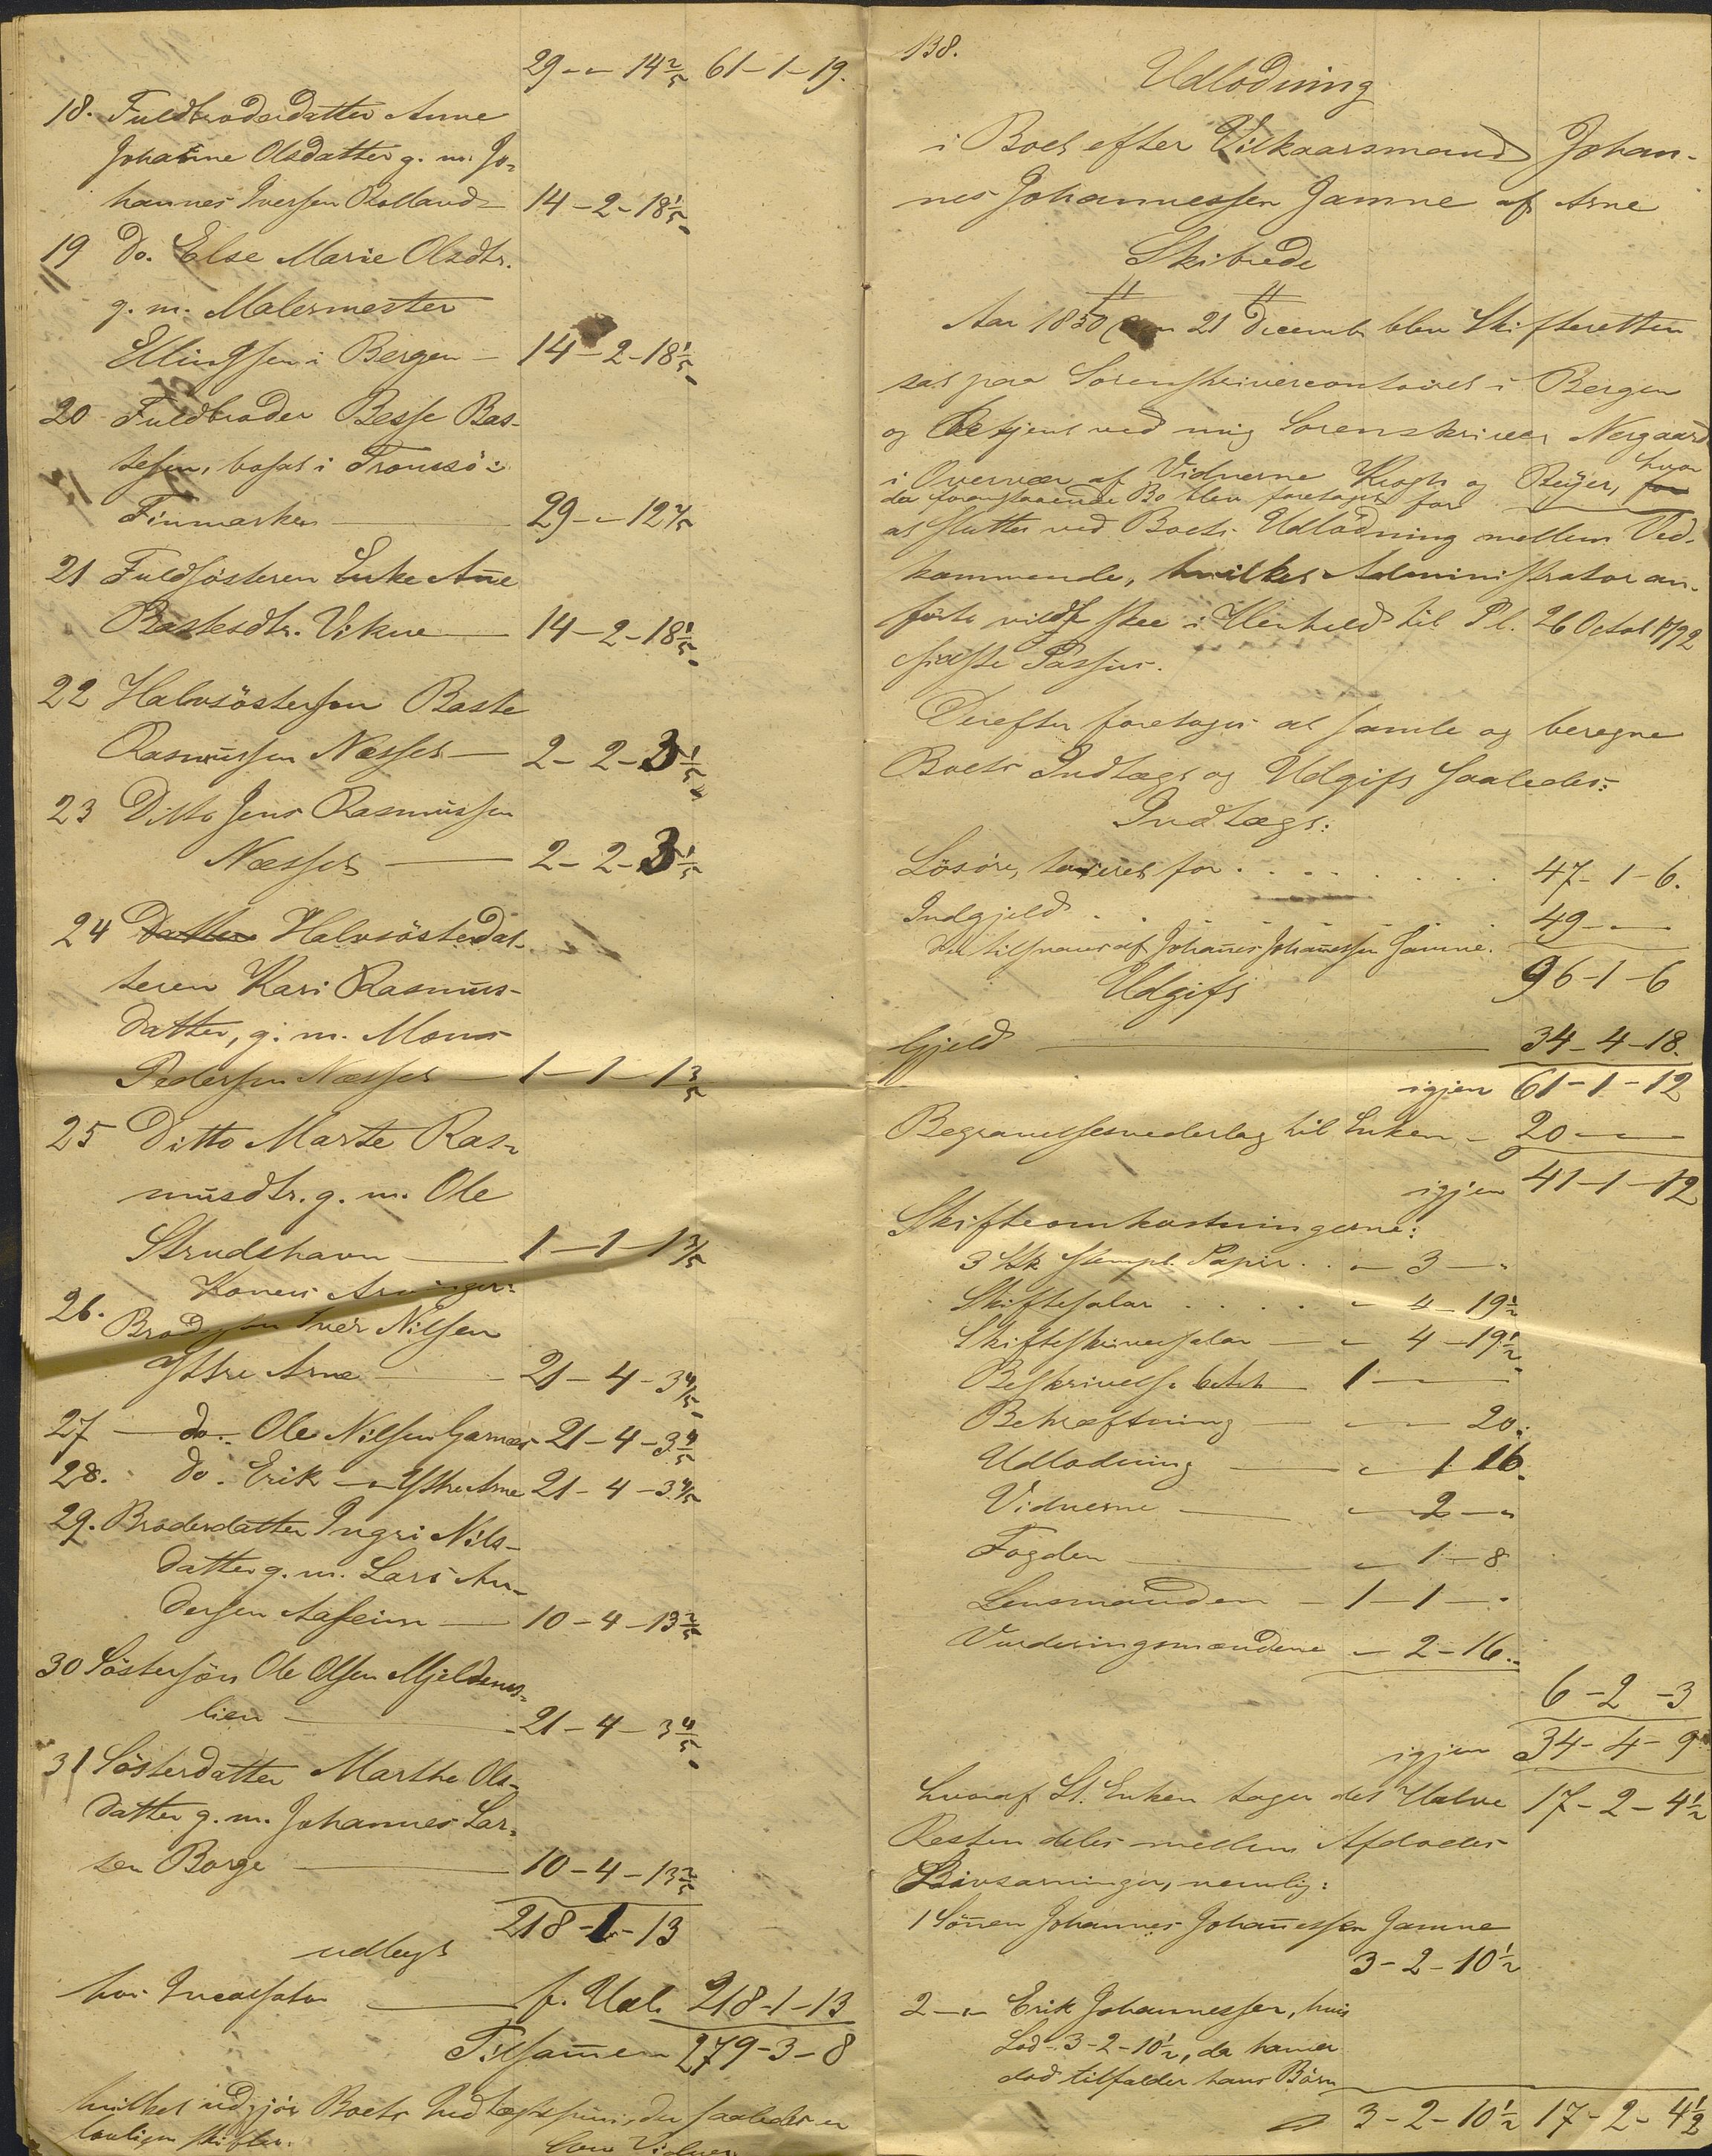 29 - " - 14 2/5 61 - 1 - 19.
18. Fuldbroderdatter Anne
Johanne Olsdatter g. m. Jo-
hannes Iversen Rolland - 14 - 2 - 18 1/5
19 Do. Else Marie Olsdtr.
g. m. Malermester
Ellingsen i Bergen - 14 - 2 - 18 1/5
20 Fuldbroder Besse Bas-
tesen, bosat i Tromsö:
Finmarken - 29 - " - 12 2/5
21 Fuldsösteren Enke Añe
Bastesdtr. Vikne - 14 - 2 - 18 1/5
22 Halvsöstersön Baste
Rasmussen Næsset - 2 - 2 - 3 1/5
23 Ditto Jens Rasmussen
Næsset - 2 - 2 - 3 1/5
24 Datter Halvsösterdat-
teren Kari Rasmus-
datter, g. m. Mons
Pedersen Næsset - 1 - 1 - 1 3/5
25 Ditto Marte Ras-
musdtr. g. m. Ole
Strudshavn - 1 - 1 - 1 3/5
Konens Arvinger:
26. Brodersön Iver Nilsen
Ystre Arne - 21 - 4 - 3 4/5
27 - do. Ole Nilsen Garnæs 21 - 4 - 3 4/5
28. do. Erik - " - Ystre Arne 21 - 4 - 3 4/5
29. Broderdatter Ingri Nils-
datter g. m. Lars An-
dersen Aaseim - 10 - 4 - 13 2/5
30 Söstersön Ole Olsen Mjeldems-
lien - 21 - 4 - 3 4/5
31 Sösterdatter Marthe Ols-
datter g. m. Johannes Lar-
sen Borge - 10 - 4 - 13 2/5
218 - 1 - 13
udlagt
hos Incassator - f. Udl. 218 - 1 - 13
Tilsam̃en 279 - 3 - 8
hvilket udgjör Boets Indtægtssum, der saaledes er
lovligen skiftet.
som Vidner
138.
Udlodning
i Boet efter Vilkaarsmand Johan-
nes Johannessen Jamne af Arne
Skibrede
Aar 1850 den 21 Decemb. blev Skifteretten
sat paa Sorenskrivercontoiret i Bergen
og betjent ved mig Sorenskriver Nergaard
i Overvær af Vidnerne Krogh og Beyer, for hvor
da foranstaaende Bo blev foretaget for
at sluttes ved Boets Udlodning mellem Ved-
kommende, hvilket Administrator an-
förte vilde skee i Henhold til Pl. 26 Octob 1792
sidste Passus.
Derefter foretages at samle og beregne
Boets Indtægt og Udgift saaledes:
Indtægt:
Lösöre, taxeret for . . . . . . . . 47 - 1 - 6.
Indgjeld . . . . . 49 - " -
der tilsvares af Johan̄es Johan̄essen Jamne.
96 - 1 - 6
Udgift
Gjeld - 34 - 4 - 18.
igjen 61 - 1 - 12
Begravelsesvederlag til Enken - 20 - " -
igjen 41 - 1 - 12
Skifteomkostningerne:
3 Stk stempl. Papir . . " - 3 - "
Skiftesalær . . . . " - 4 - 19 1/2
Skifteskriversalær - " - 4 - 19 1/2
Beskrivelse betalt 1 - " -
Bekræftning - " - " - 20.
Udlodning - " - 1 16.
Vidnerne - " - 2 - "
Fogden - " - 1 - 8
Lensmanden - 1 - 1 - "
Vurderingsmændene " - 2 - 16.
6 - 2 - 3
igjen 34 - 4 - 9
hvoraf St. Enken tager det Halve 17 - 2 - 4 1/2
Resten deles mellem Afdödes
Livsarvinger, nemlig:
1 Sönnen Johannes Johan̄essen Jamne
3 - 2 - 10 1/2
2 - " - Erik Johannessen, hvis
Lod 3 - 2 - 10 1/2, da han er
död tilfalder hans Börn
3 - 2 - 10 1/2 17 - 2 - 4 1/2